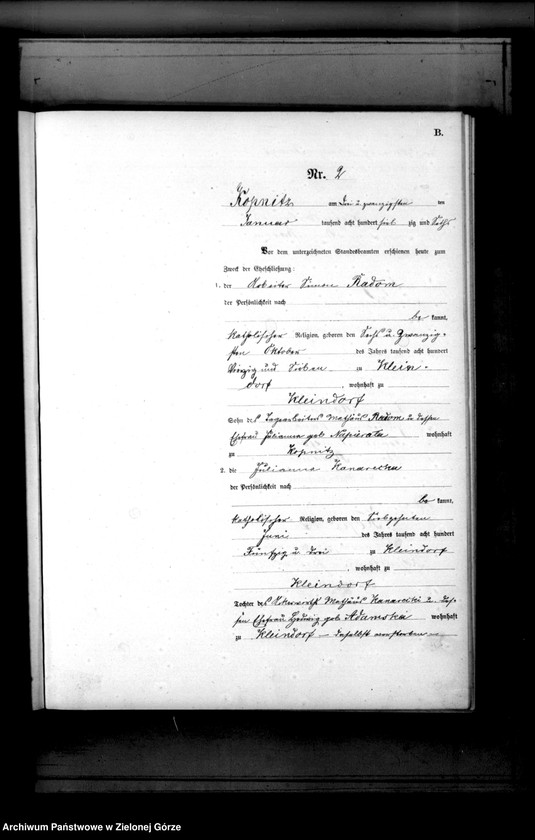 B.
Nr. 2
Kopnitz am drei u. zwanzigsten ten
Januar tausend acht hundert sieb zig und Sechs
Vor dem unterzeichneten Standesbeamten erschienen heute zum
Zweck der Eheschließung:
1. der Arbeiter Simon Radom
der Persönlichkeit nach
be kannt,
katholischer Religion, geboren den Sechs u. Zwanzig-
sten Oktober des Jahres tausend acht hundert
Vierzig und Sieben zu Klein-
dorf, wohnhaft zu
Kleindorf
Sohn des Tagearbeiters Mathäus Radom u. dessen
Ehefrau Julianna geb. Napierala wohnhaft
zu Kopnitz
2. die Julianna Kanarecka
der Persönlichkeit nach
be kannt,
katholischer Religion, geboren den Siebzehnten
Juni des Jahres tausend acht hundert
Fünfzig u. drei zu Kleindorf
, wohnhaft zu
Kleindorf
Tochter des Mathäus Kanarecki u. des-
sen Ehefrau Hedwig geb. Adamska wohnhaft
zu Kleindorf – daselbst verstorben
Archiwum Państwowe w Zielonej Górze